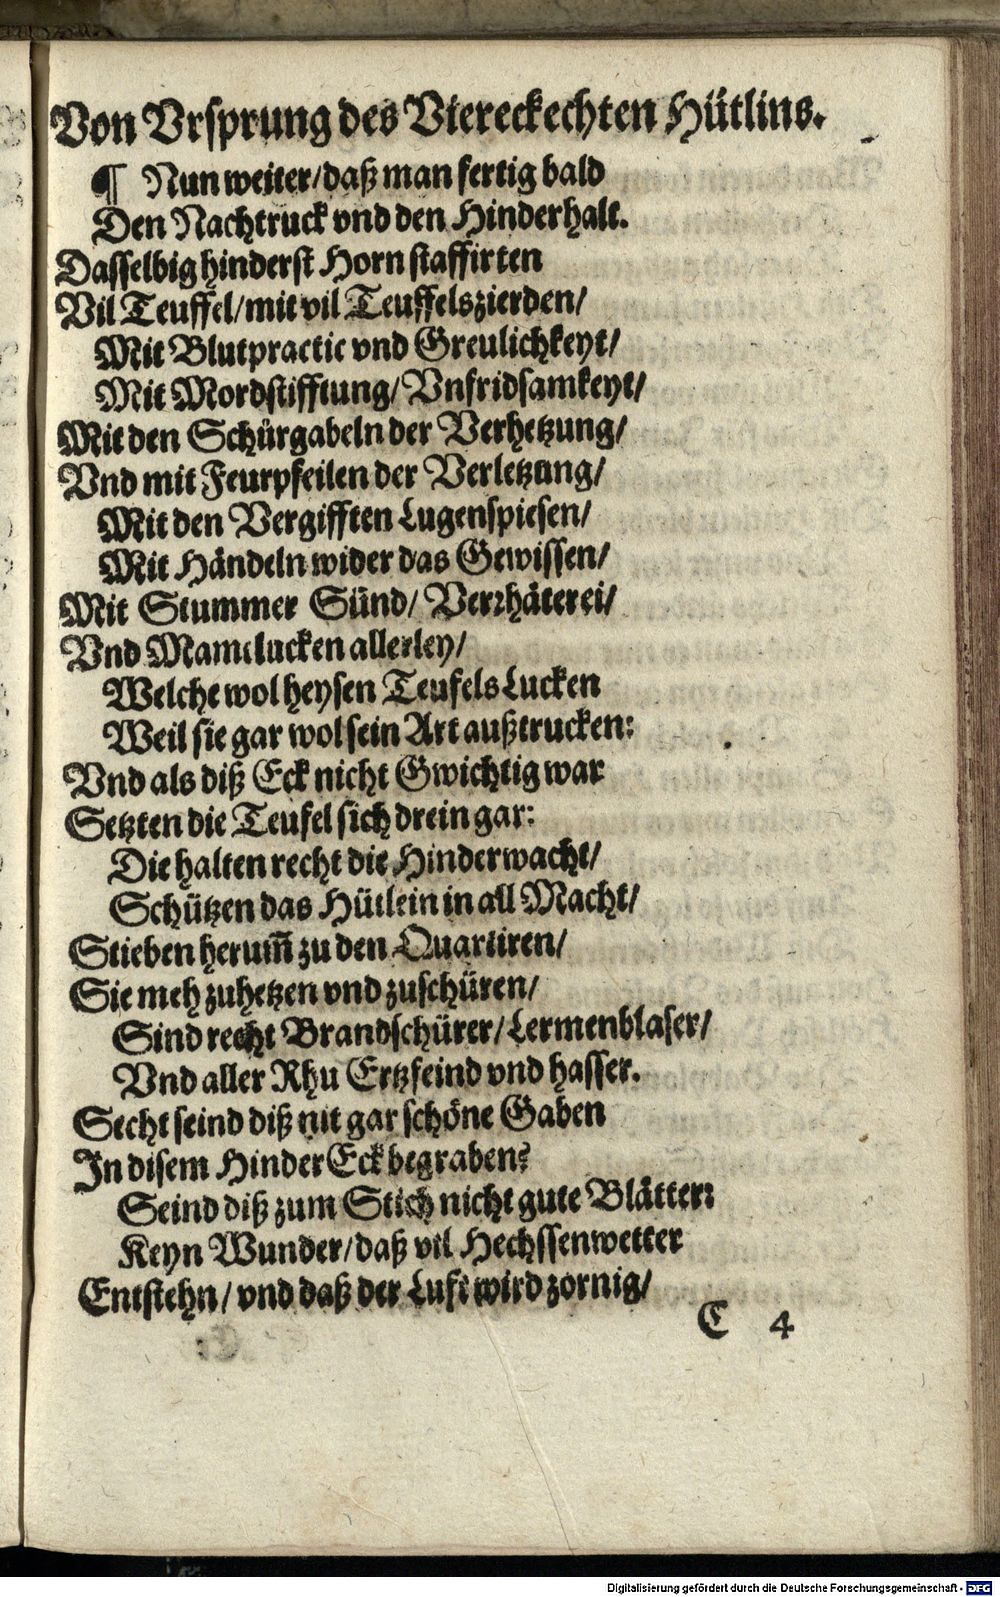 Von Vrsprung des Viereckechten Hütlins.
¶ Nun weiter/daß man fertig bald
Den Nachtruck vnd den Hinderhalt.
Dasselbig hinderst Horn staffirten
Vil Teuffel/mit vil Teuffelszierden/
Mit Blutpractic vnd Greulichkeyt/
Mit Mordstifftung/Vnfridsamkeyt/
Mit den Schürgabeln der Verhetzung/
Vnd mit Feurpfeilen der Verletzung/
Mit den Vergifften Lugenspiesen/
Mit Händeln wider das Gewissen/
Mit Stummer Sünd/Verrhäterei/
Vnd Mamelucken allerley/
Welche wol heysen Teufels Lucken
Weil sie gar wol sein Art außtrucken:
Vnd als diß Eck nicht Gwichtig war
Setzten die Teufel sich drein gar:
Die halten recht die Hinderwacht/
Schützen das Hütlein in all Macht/
Stieben herum̃ zu den Quartiren/
Sie meh zuhetzen vnd zuschüren/
Sind recht Brandschürer/Lermenblaser/
Vnd aller Rhu Ertzfeind vnd hasser.
Secht seind diß nit gar schöne Gaben
In disem Hinder Eck begraben?
Seind diß zum Stich nicht gute Blätter:
Keyn Wunder/daß vil Hechssenwetter
Entstehn/vnd daß der Luft wird zornig/
C 4
Digitalisierung gefördert durch die Deutsche Forschungsgemeinschaft - DFG